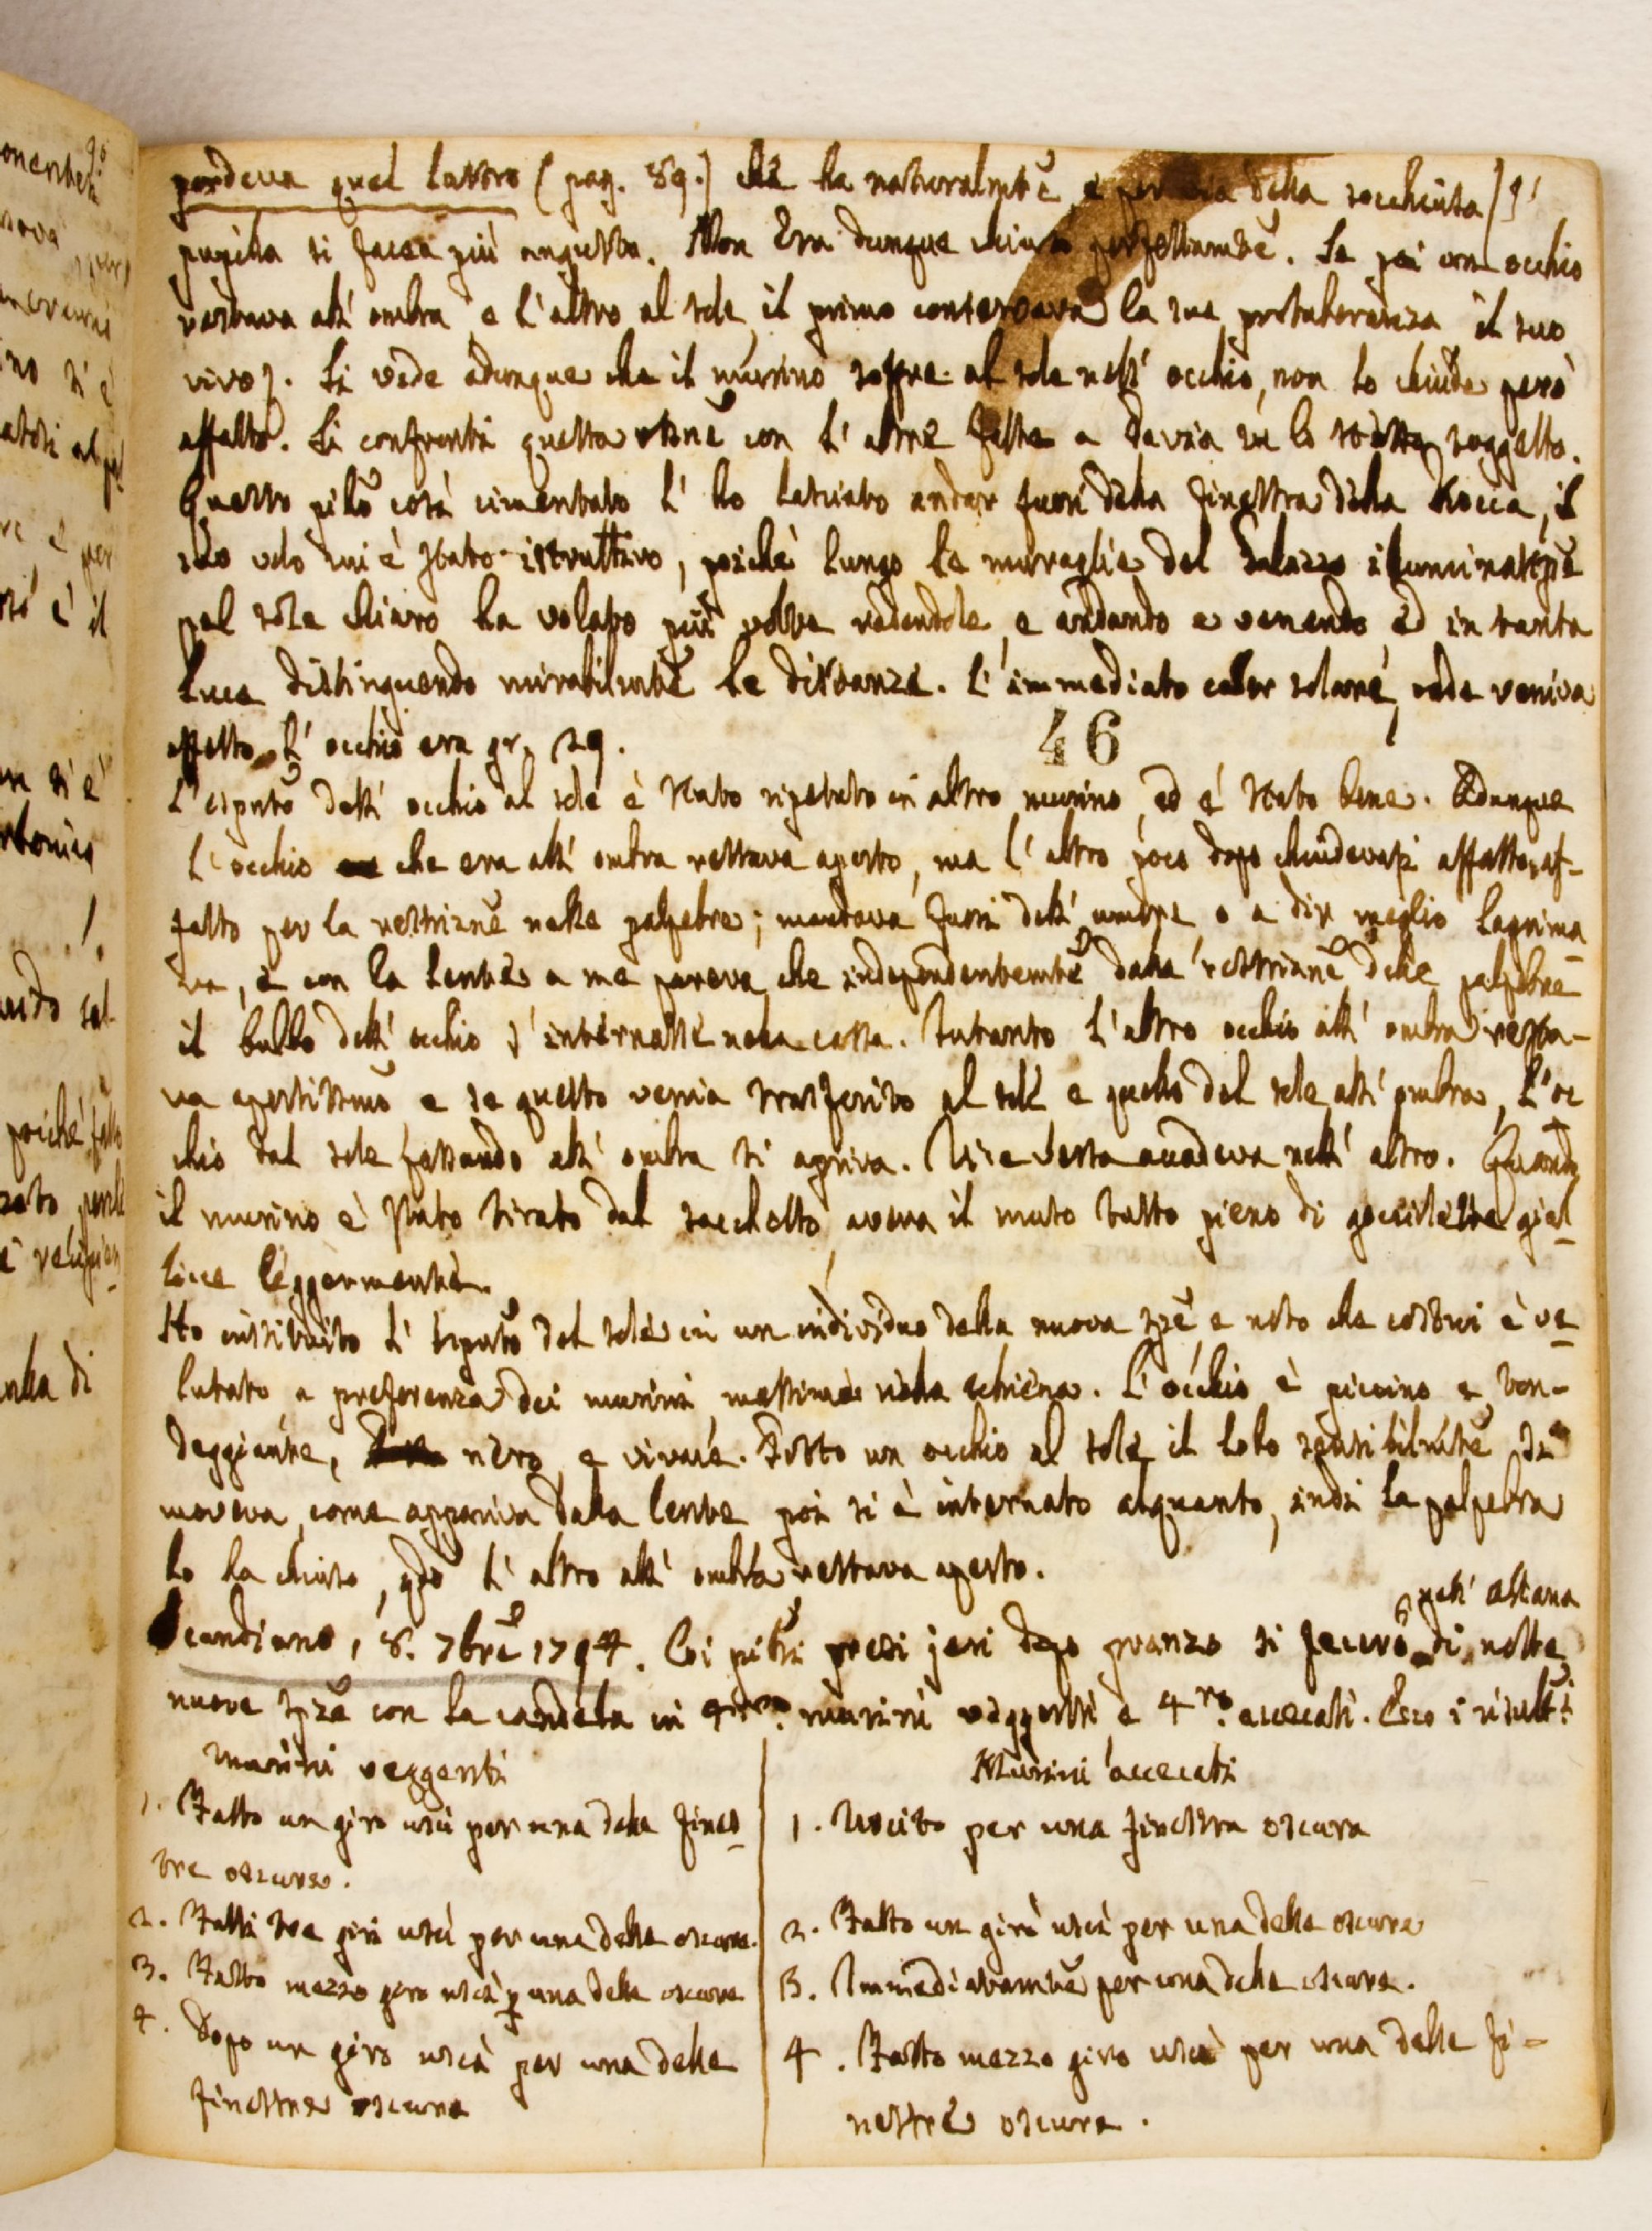 perdeva quel lustro (pag. 89.) che ha naturalmtẽ, e per via della socchiusa
pupilla si facea più angusta. Non era dunque chiuso perfettamtẽ. Se poi un occhio
restava all' ombra e l'altro al sole, il primo conservava la sua protuberanza il suo
vivo. Si vede adunque che il murino soffre al sole nell' occhio, non lo chiude però
affatto. Si confronti questa con l' altre fatte a Pavia su lo stesso soggetto.
Questo pilõ così cimentato l' ho lasciato andar fuori della finestra della Rocca, il
suo volo mi è stato istruttivo, poichè lungo le muraglie del Palazzo illuminate
pel sole chiaro ha volato più volte radendole, e andando e venendo ed in tanta
luce distinguendo mirabilmtẽ le distanze. L' immediato calor solare, onde veniva
affetto l' occhio era gr. 29.
46
L' dell' occhio al sole è stato ripetuto in altro murino, ed è stato bene. Adunque
l' occhio che era all' ombra restava aperto, ma l' altro poco dopo chiudevasi affatto af-
fatto per la nelle palpebre; mandava fuori dell' umore o a dir meglio lagrima
va, e con la lente a me pareva che independentemtẽ dalla delle palpebre
il bulbo dell' occhio s' internasse nella cassa. Intanto l' altro occhio all' ombra resta-
va apertissimo e se questo venia trasferito al sole e quello del sole all' ombra, l' oc
chio dal sole passando all' ombra si apriva. Vice versa accadeva nell' altro. Quando
il murino è stato tirato dal sacchetto aveva il muso tutto pieno di goccilette gial
licce leggermente.
Ho instituito l' del sole in un individuo della nuova spẽ, e noto che costui è ve
lutato a preferenza dei murini massime nella schiena. L' occhio è piccino e ton-
deggiante, nero e vivace. Posto un occhio al sole il lobo sensibilmtẽ si
moveva, come appariva dalla lente poi si è internato alquanto, indi la palpebra
lo ha chiuso, l' altro all' ombra restava aperto.
nell' altana
Scandiano, 8. 7brẽ 1794. Coi presi jeri dopo pranzo si fecero di notte
nuove con la candela in 4tro murini veggenti e 4ro accecati. Ecco i
Murini veggenti
1. Fatto un giro uscì per una delle fines
tre oscure.
2. Fatti tre giri uscì per una delle oscure.
3. Fatto mezzo giro uscì p una delle oscure
4. Dopo un giro uscì per una delle
finestre oscure
Murini accecati
1. Uscito per una finestra oscura
2. Fatto un giro uscì per una delle oscure
3. Immediatamtẽ per una delle oscure.
4. Fatto mezzo giro uscì per una delle fi-
nestre oscure.